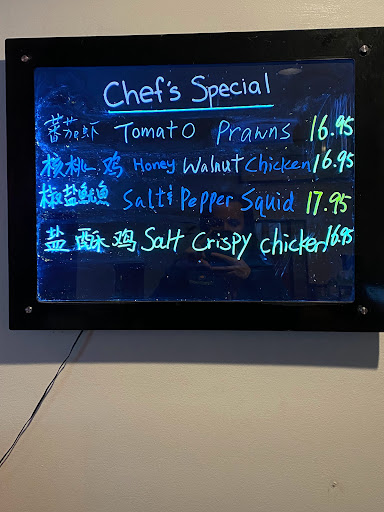 Chef's Special
蕃茄虾 Tomato Prawns 16.95
核桃鸡 Honey Walnut Chicken 16.95
椒盐鱿魚 Salt & Pepper Squid 17.95
盐酥鸡 Salt Crispy chicken 16.95